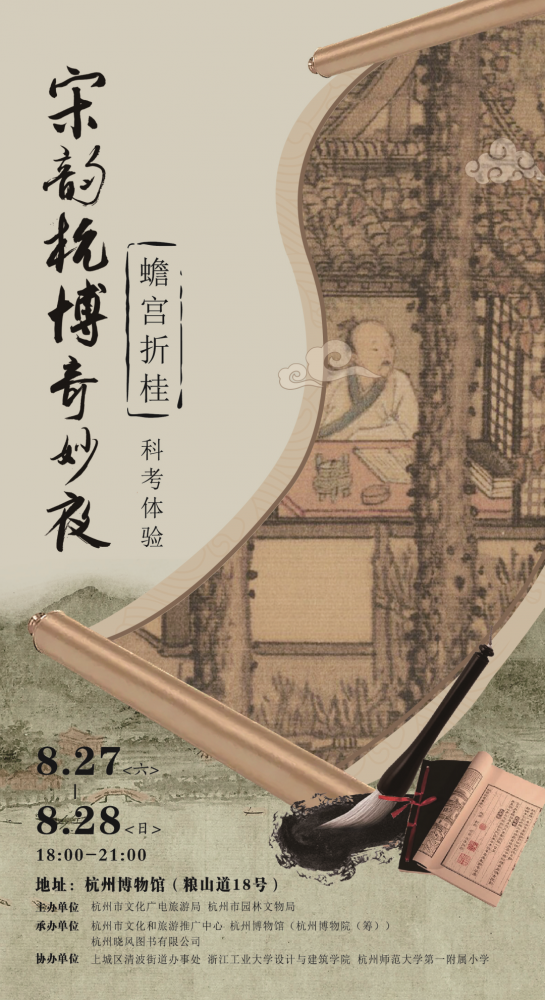 宋韵杭博奇妙夜
蟾宫折桂
科考体验
8.27<六>
8.28<日>
18:00-21:00
地址：杭州博物馆（粮山道18号）
主办单位 杭州市文化广电旅游局 杭州市园林文物局
承办单位 杭州市文化和旅游推广中心 杭州博物馆（杭州博物院（筹））
杭州晓风图书有限公司
协办单位 上城区清波街道办事处 浙江工业大学设计与建筑学院 杭州师范大学第一附属小学